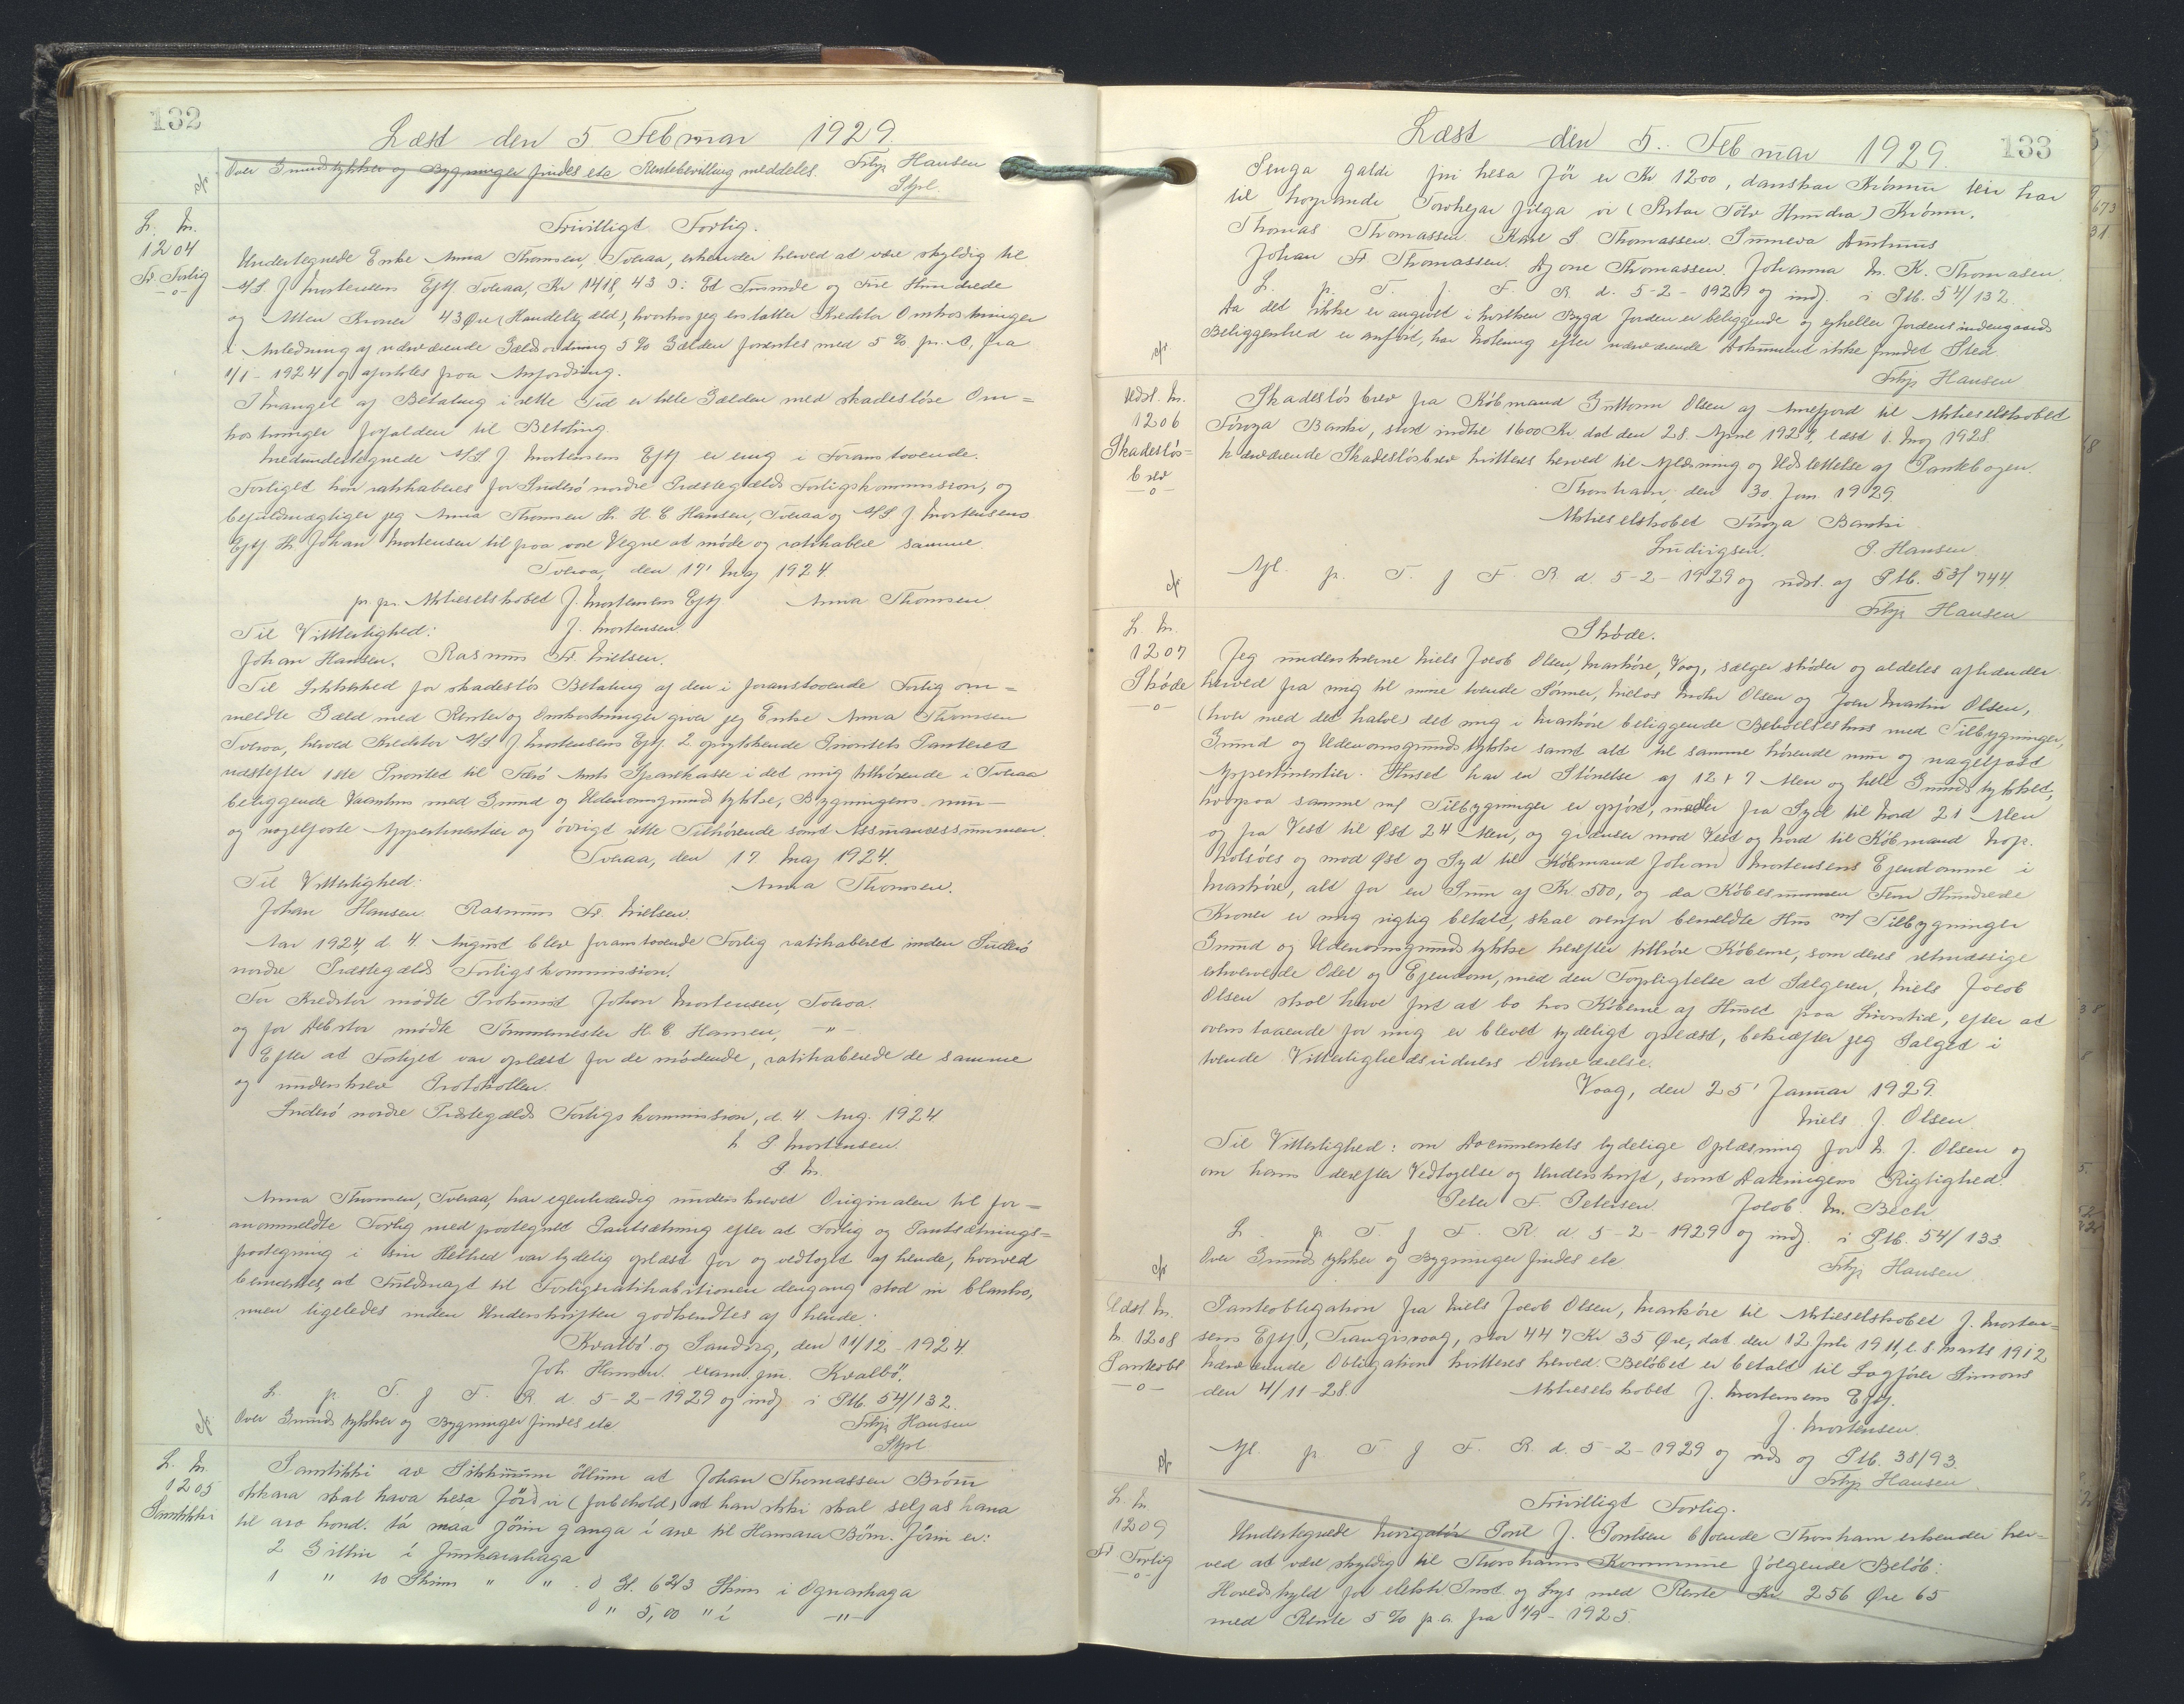 132
Læst den 5 Februar 1929.
Over Grundstykker og Bygninger findes etc Rentebevilling meddeles. Filip Hansen
Stpl.
L. N.
1204
Fr. Forlig
Frivilligt Forlig.
Undertegnede Enke Anna Thomsen, Tveraa, erkender herved at være skyldig til
A/S J Mortensens Eftf Tveraa, Kr 1418, 43 ɔ: Et Tusinde og Fire Hundrede
og Atten Kroner 43 Øre (Handelsgæld), hvorhos jeg erstatter Kreditor Omkostninger
i Anledning af nærværende Gældsordning 5 % Gælden forrentes med 5 % pr. A. fra
1/1 - 1924 og afbetales paa Anfordring.
I Mangel af Betaling i rette Tid er hele Gælden med skadesløse Om=
kostninger forfalden til Betaling.
Medundertegnede A/S J Mortensens Eftf er enig i Foranstaaende.
Forliget kan ratihaberes for Suderø nordre Præstegælds Forligskommission, og
befuldmægtiger jeg Anna Thomsen Hr. H. C Hansen, Tveraa og A/S J Mortensens
Eftf Hr. Johan Mortensen til paa vore Vegne at møde og ratihabere samme
Tveraa, den 17' Maj 1924.
pr pr. Aktieselskabet J. Mortensens Eftf Anna Thomsen
Til Vitterlighed: J. Mortensen
Johan Hansen. Rasmus Fr. Nielsen.
Til Sikkerhed for skadesløs Betaling af den i foranstaaende Forlig om=
meldte Gæld med Renter og Omkostninger giver jeg Enke Anna Thomsen
Tveraa, herved Kreditor A/S J Mortensens Eftf. 2 oprykkende Prioritets Panteret
næstefter 1ste Prioritet til Færø Amts Sparekasse i det mig tilhørende i Tveraa
beliggende Vaanhus med Grund og Udenomsgrundstykke, Bygningens mur-
og nagelfaste Appertinentier og øvrigt rette Tilhørende samt Assurancesummen.
Tveraa, den 17. Maj 1924.
Til Vitterlighed: Anna Thomsen.
Johan Hansen. Rasmus Fr. Nielsen.
Aar 1924, d. 4. August blev foranstaaende Forlig ratihaberet inden Suderø
nordre Præstegælds Forligskommission.
For Kreditor mødte Prokurist Johan Mortensen, Tveraa.
og for Debitor mødte Tømmermester H. C Hansen, -"-
Efter at Forliget var oplæst for de mødende, ratihaberede de samme
og underskrev Protokollen.
Suderø nordre Præstegælds Forligskommission, d. 4. Aug. 1924
P. Mortensen
Anna Thomsen, Tveraa, har egenhændig underskrevet Originalen til for=
anommeldte Forlig med paategnet Pantsætning efter at Forlig og Pantsætnings=
paategning i sin Helhed var tydelig oplæst for og vedtaget af hende, hvorved
bemærkes, at Fuldmagt til Forligsratihabitionen dengang stod in blanko,
men ligeledes inden Underskriften godkendtes af hende.
Kvalbø og Sandvig, den 11/12 - 1924
Joh. Hansen exam. jur. Kvalbø.
L. p. T. f F. R d 5-2-1929 og indf i Ptb. 54/132.
Over Grundstykker og Bygninger findes etc Filip Hansen
Stpl
L. N.
1205
Samtikki
Samtikki av Sikkunum öllum at Johan Thomassen Bróur
okkara skal hava hesa Jörð (forbehold) at han ikki skal seljas hana
til ara hond. tá maa Jörin ganga í arv til Hansara Börn. Jörin er:
2 Gillin í Junkarahaga
1 " 10 Skinn " " . 0 Gl. 6 2/3 Skinn i Ognarhaga
0 " 5,00 " i -"-
133
Læst den 5. Februar 1929
Penga galdi fri hesa Jör er Kr 1200, danskar Krónur teir har
til hoyrandi Torvheyar filga vi (Ritar Tólv Hundra) Krónur.
Thomas Thomassen. Karl S. Thomassen. Sunneva Antunus
Johan Fr Thomassen. Ajone Thomassen. Johanna M. K. Thomasen.
L. p. T. f. F. R. d. 5-2-1929 og indf. i Ptb. 54/132.
Da det ikke er angivet i hvilken Bygd Jorden er beliggende og ejheller Jordens indengaards
Beliggenhed er anført, har Notering efter nærværende Dokument ikke fundet Sted
Filip Hansen
Udsl. N.
1206
Skadesløs=
brev
Skadesløsbrev fra Købmand Guttorm Olsen af Arnefjord til Aktieselskabet
Føroya Banki, stort indtil 1600 Kr dat den 28. April 1928, læst 1. Maj 1928.
Nærværende Skadesløsbrev kvitteres herved til Aflæsning og Udslettelse af Pantebogen.
Thorshavn, den 30 Jan. 1929.
Aktieselskabet Føroya Banki
Ludvigsen. P. Hansen.
Afl. p. T. f F. R. d. 5-2-1929 og udsl. af Ptb. 53/744
Filip Hansen
L. N.
1207
Skøde
Skøde.
Jeg underskrevne Niels Jacob Olsen, Marköre, Vaag, sælger skøder og aldeles afhænder
herved fra mig til mine tvende Sønner, Niclas Mohr Olsen og Joen Martin Olsen,
(hver med det halve) det mig i Marköre beliggende Beboelseshus med Tilbygninger,
Grund og Udenomsgrundstykke samt alt til samme hørende mur og nagelfast
Appertinentier. Huset har en Størrelse af 12 + 7 Alen og hele Grundstykket,
hvorpaa samme m/ Tilbygninger er opført, maaler fra Syd til Nord 21 Alen
og fra Vest til Øst 24 Alen, og grænser mod Vest og Nord til Købmand Nap.
Nolsöes og mod Øst og Syd til Købmand Johan Mortensens Ejendomme i
Marköre, alt for en Sum af Kr. 500, og da Købesummen Fem Hundrede
Kroner er mig rigtig betalt, skal ovenfor bemeldte Hus m/ Tilbygninger
Grund og Udenomsgrundstykke herefter tilhøre Køberne, som deres retmæssige
erhvervede Odel og Ejendom, med den Forpligtelse at Sælgeren, Niels Jacob
Olsen skal have frit at bo hos Køberne af Huset paa Livstid, efter at
ovenstaaende for mig er blevet tydeligt oplæst, bekræfter jeg Salget i
tvende Vitterlighedsvidners Overværelse.
Vaag, den 25' Januar 1929.
Niels J. Olsen.
Til Vitterlighed: om Documentets tydelige Oplæsning for N. J. Olsen og
om hans derefter Vedtagelse og Underskrift, samt Dateringens Rigtighed.
Peter F. Petersen. Jacob. M. Bech
L. p T f F. R. d 5-2-1929 og indf. i Ptb. 54/133
Over Grundstykker og Bygninger findes etc Filip Hansen
Udsl. N.
N. 1208
Panteobl
Panteobligation fra Niels Jacob Olsen, Marköre til Aktieselskabet J. Morten=
sens Eftf, Trangisvaag, stor 447 Kr 35 Øre, dat. den 12 Juli 1911, l. 8. Marts 1912
Nærværende Obligation kvitteres herved. Beløbet er betalt til Sagfører Simons
den 4/11-28. Aktieselskabet J. Mortensens Eftf.
J. Mortensen.
Afl. p. T f F. R. d. 5-2-1929 og uds og Ptb. 38/93.
Filip Hansen
L. N
1209
Fr Forlig
Frivilligt Forlig.
Undertegnede Navigatör Poul J. Poulsen boende Thorshavn erkender her=
ved at være skyldig til Thorshavns Kommune følgende Beløb:
Hovedskyld for elektr. Inst. og Lys med Rente Kr 256 Øre 65
med Rente 5 % p a. fra 1/9 - 1925.